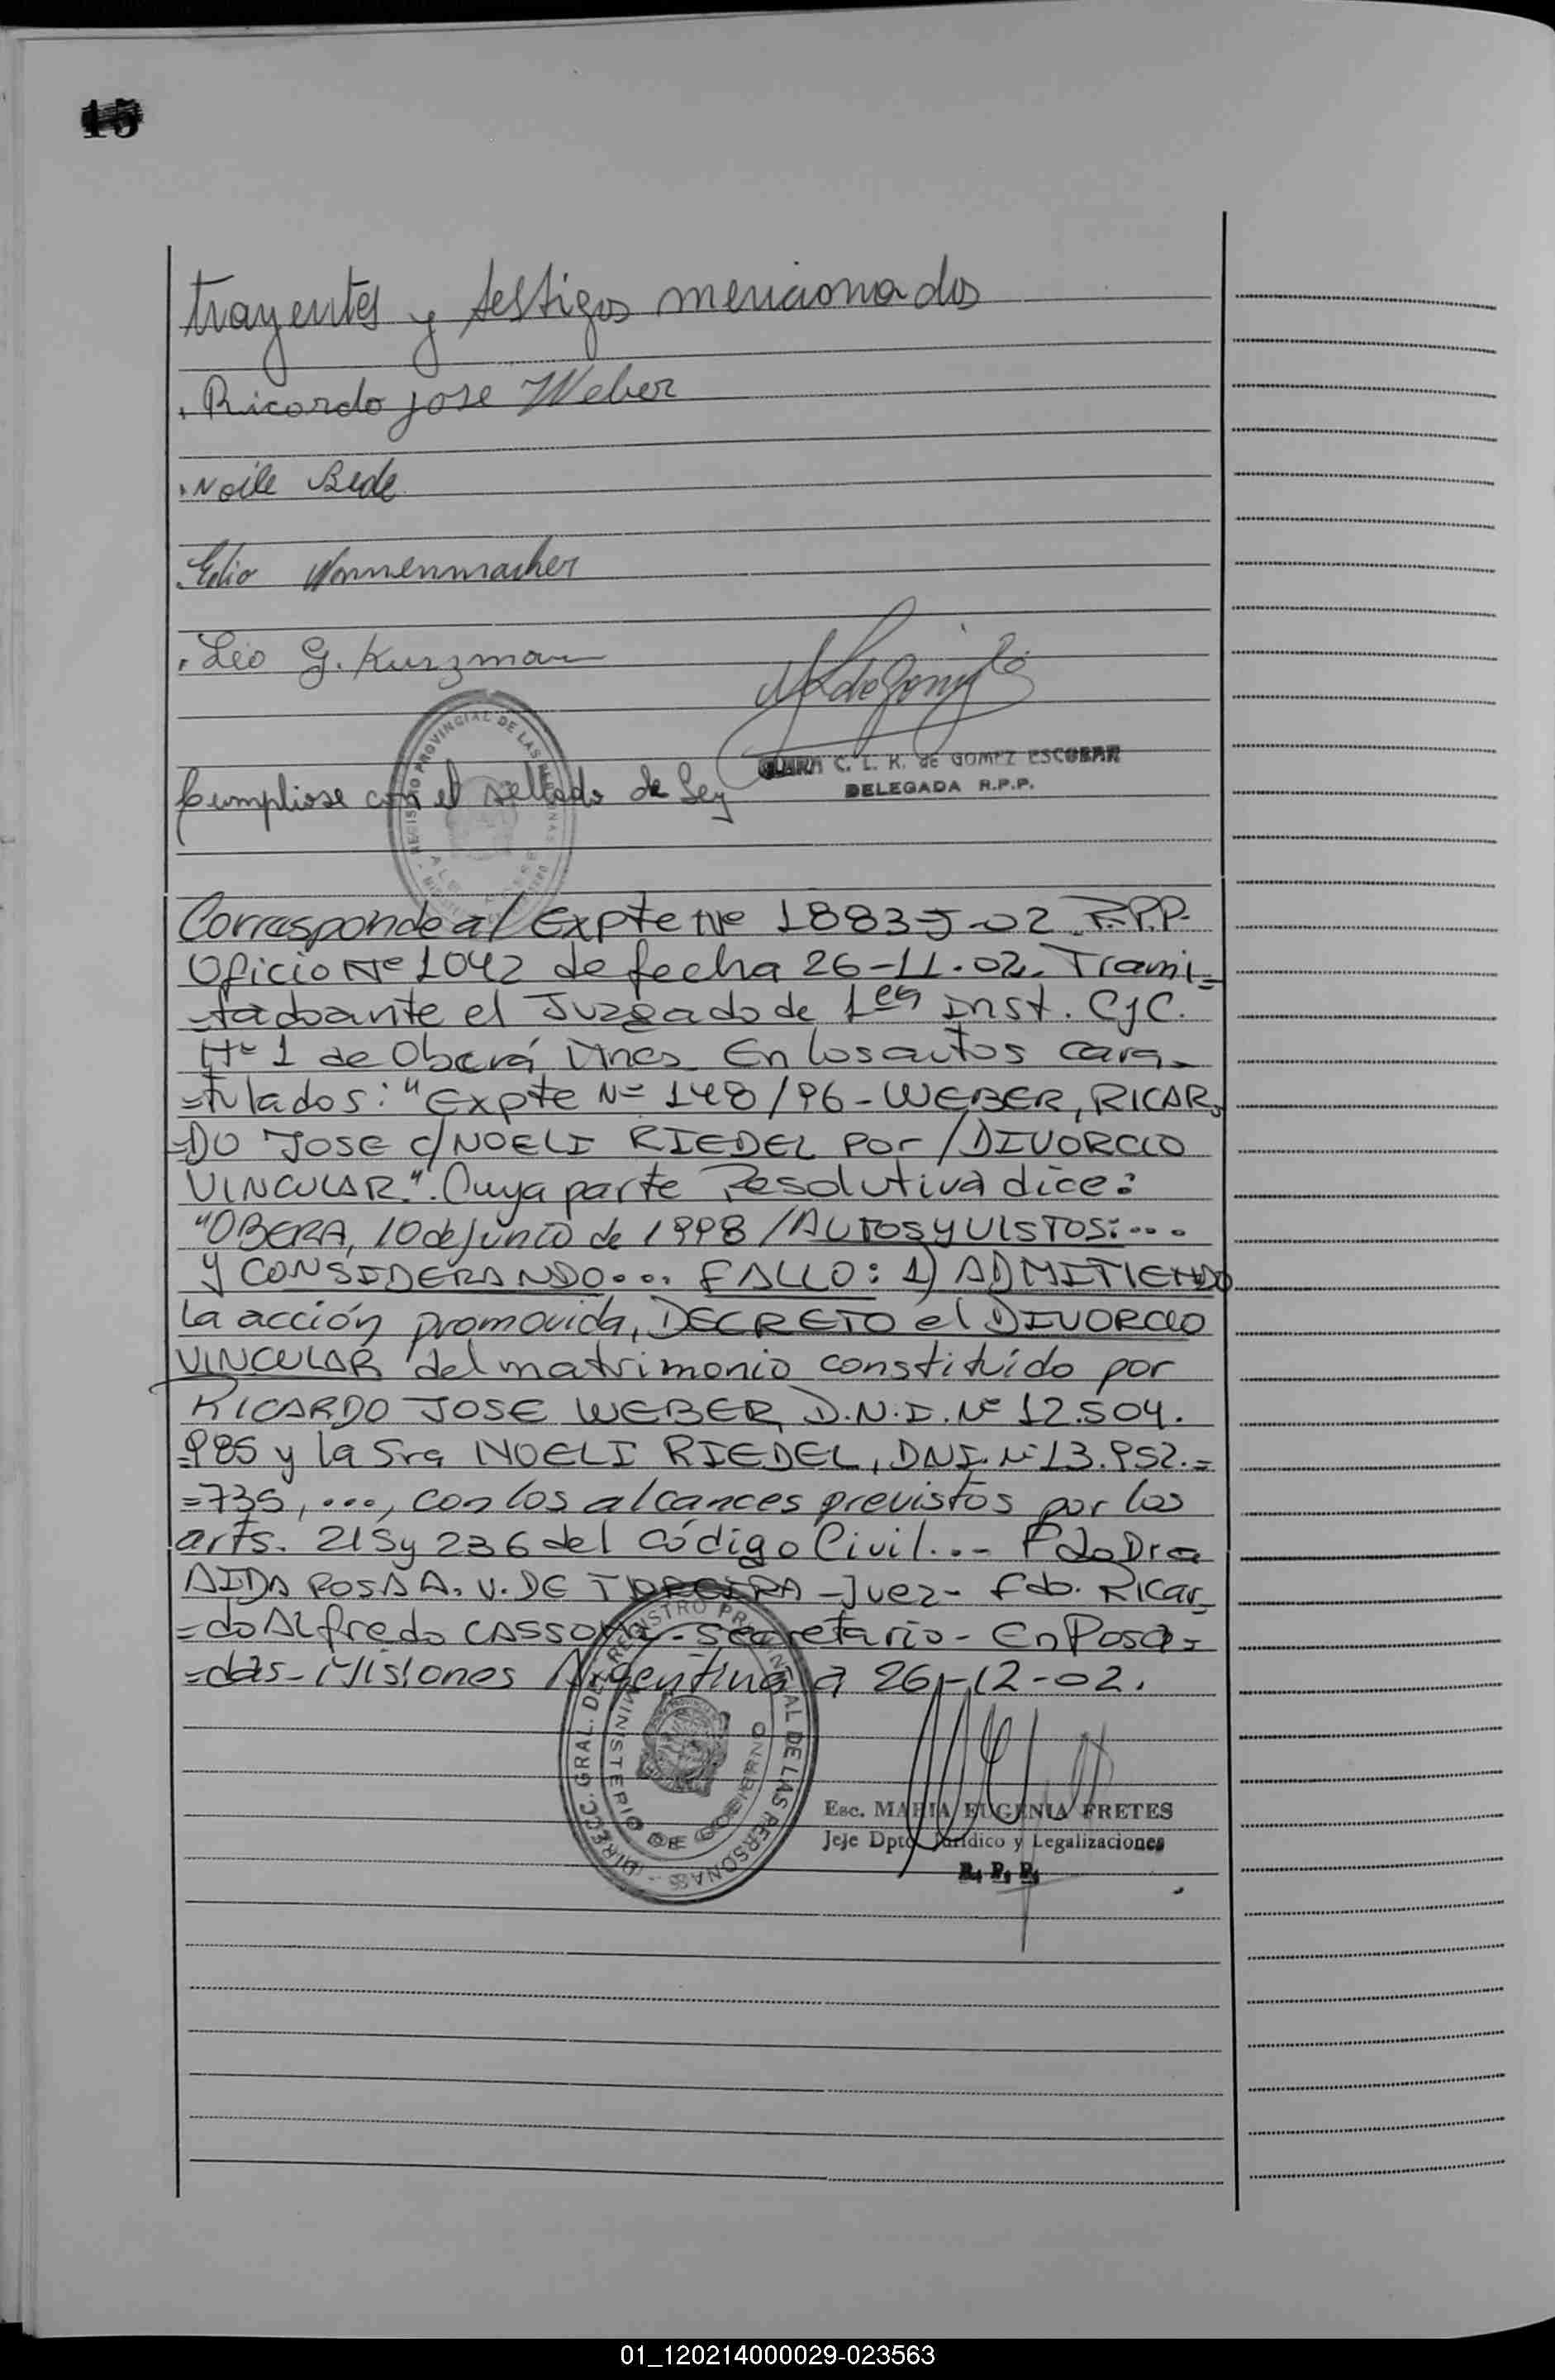 15
trayentes y testigos mencionados
Ricardo jose Weber
Noile Rede
Wonnenmacher
Leo G. Kurzman
C. L. K. de GOMEZ ESCOBAR
DELEGADA R.P.P.
Cumpliose con el sellado de Ley
Corresponde al Expte Nº 1883-J-02 R.P.P.
Oficio Nº 1042 de fecha 26-11-02. Trami=
=tado ante el Juzgado de 1era Inst. CyC.
Nº 1 de Oberá, Mnes. En los autos cara=
=tulados: "Expte Nº 148/96 - WEBER, RICAR=
=DO JOSE c/ NOELI RIEDEL Por / DIVORCIO
VINCULAR". Cuya parte Resolutiva dice:
"OBERA, 10 de junio de 1998 / AUTOS y VISTOS: ....
Y CONSIDERANDO.... FALLO: 1) ADMITIENDO
la acción promovida, DECRETO el DIVORCIO
VINCULAR del matrimonio constituído por
RICARDO JOSE WEBER, D.N.I. Nº 12.504.
=985 y la Sra NOELI RIEDEL, DNI. Nº 13.952.=
=735, ..., con los alcances previstos por los
arts. 215 y 236 del Código Civil... Fdo Dra
AIDA ROSA A. V. DE - Juez - Fdo. Ricar=
=do Alfredo CASSONI - Secretario - En Posa=
=das - Misiones Argentina a 26-12-02.
DIREC. GRAL. DEL REGISTRO PROVINCIAL DE LAS PERSONAS
MINISTERIO DE GOBIERNO
Esc. MARIA EUGENIA FRETES
Jefe Dpto. Jurídico y Legalizaciones
R. P. P.
01_120214000029-023563